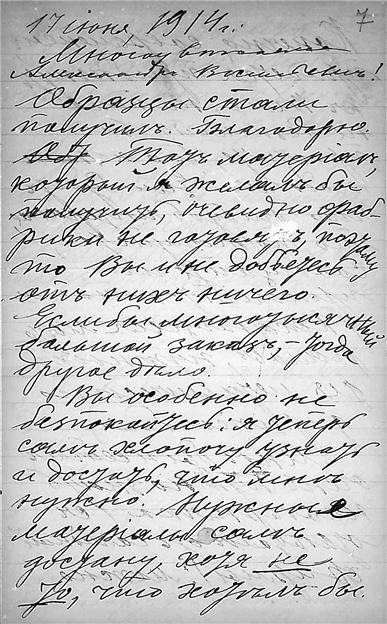 7
17 іюня, 1914 г.
Многоуважаемый
Александръ Васильевичъ!
Образцы стали
получилъ. Благодарю.
Тотъ матеріалъ,
который я желалъ бы
получить, очевидно фаб-
рики не готовятъ, поэтому
то Вы и не добьетесь
отъ нихъ ничего.
Еслибы многотысячный
большой заказъ, – тогда
другое дѣло.
Вы особенно не
безпокойтесь: я теперь
самъ хлопочу узнать
и достать, что мнѣ
нужно. Нужные
матеріалы самъ
достану, хотя не
то, что хотѣлъ бы.